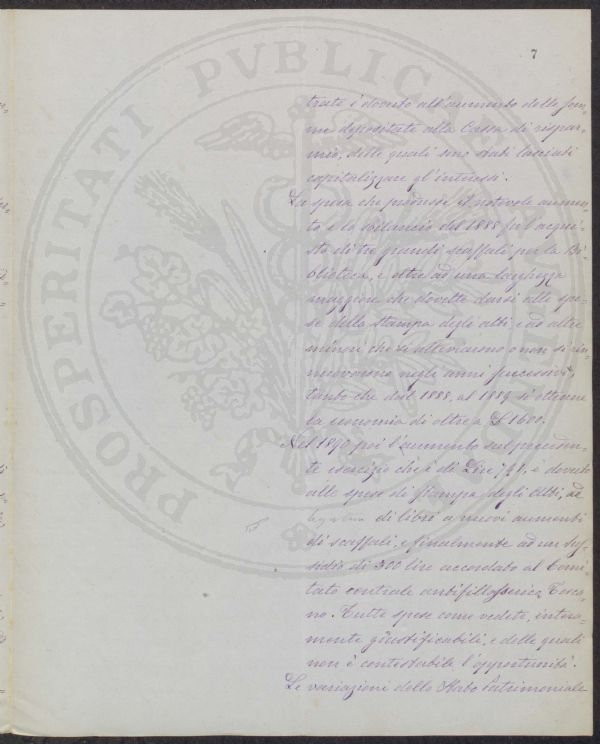 7
trate è dovuto all'aumento delle som=
me depositate alla Cassa di rispar=
mio, delle quali sono stati lasciati
capitalizzare gl'interessi.
La spesa che produsse il notevole aumen=
to e lo sbilancio del 1888 fu l'acqui=
sto di tre grandi scaffali per la Bi=
blioteca, e oltre ad una larghezza
maggiore che dovette darsi alle spe=
se della stampa degli atti e ad altre
minori che si alleviarono o non si rin=
nuovarono negli anni successivi,
tanto che dal 1888 al 1889 si ottenne
la economia di oltre a £ 1600.
Nel 1890 poi l'aumento sul preceden=
te esercizio che è di Lire, è dovuto
alle spese di stampa degli Atti, ad
di libri a nuovi aumenti
di scaffali, e finalmente ad un sus=
sidio di 300 lire accordato al Comi=
tato centrale antifillosserico Tosca=
no. Tutte spese come vedete, intera=
mente giustificabili, e delle quali
non è contestabile l'opportunità.
Le variazioni dello Stato Patrimoniale
PROSPERITATI PVBLICAE